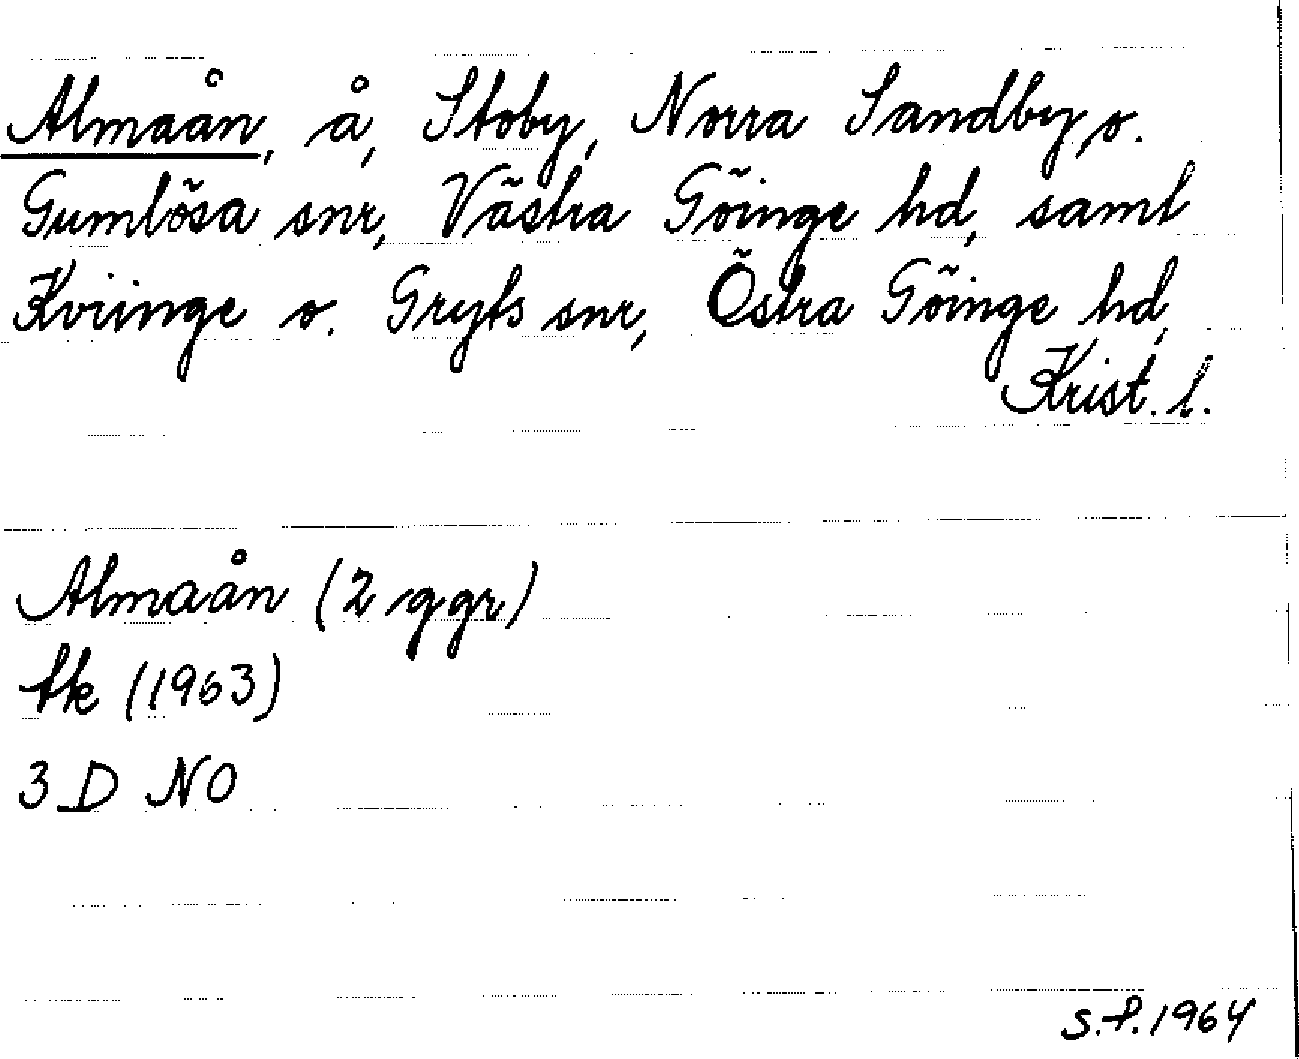 Almaån, å, Stoby, Norra Sandby o.
Gumlösa snr, Västra Göinge hd, samt
Kviinge o. Gryts snr, Östra Göinge hd,
Krist. l.
Almaån (2 ggr)
tk (1963)
3 D NO
S.F. 1964